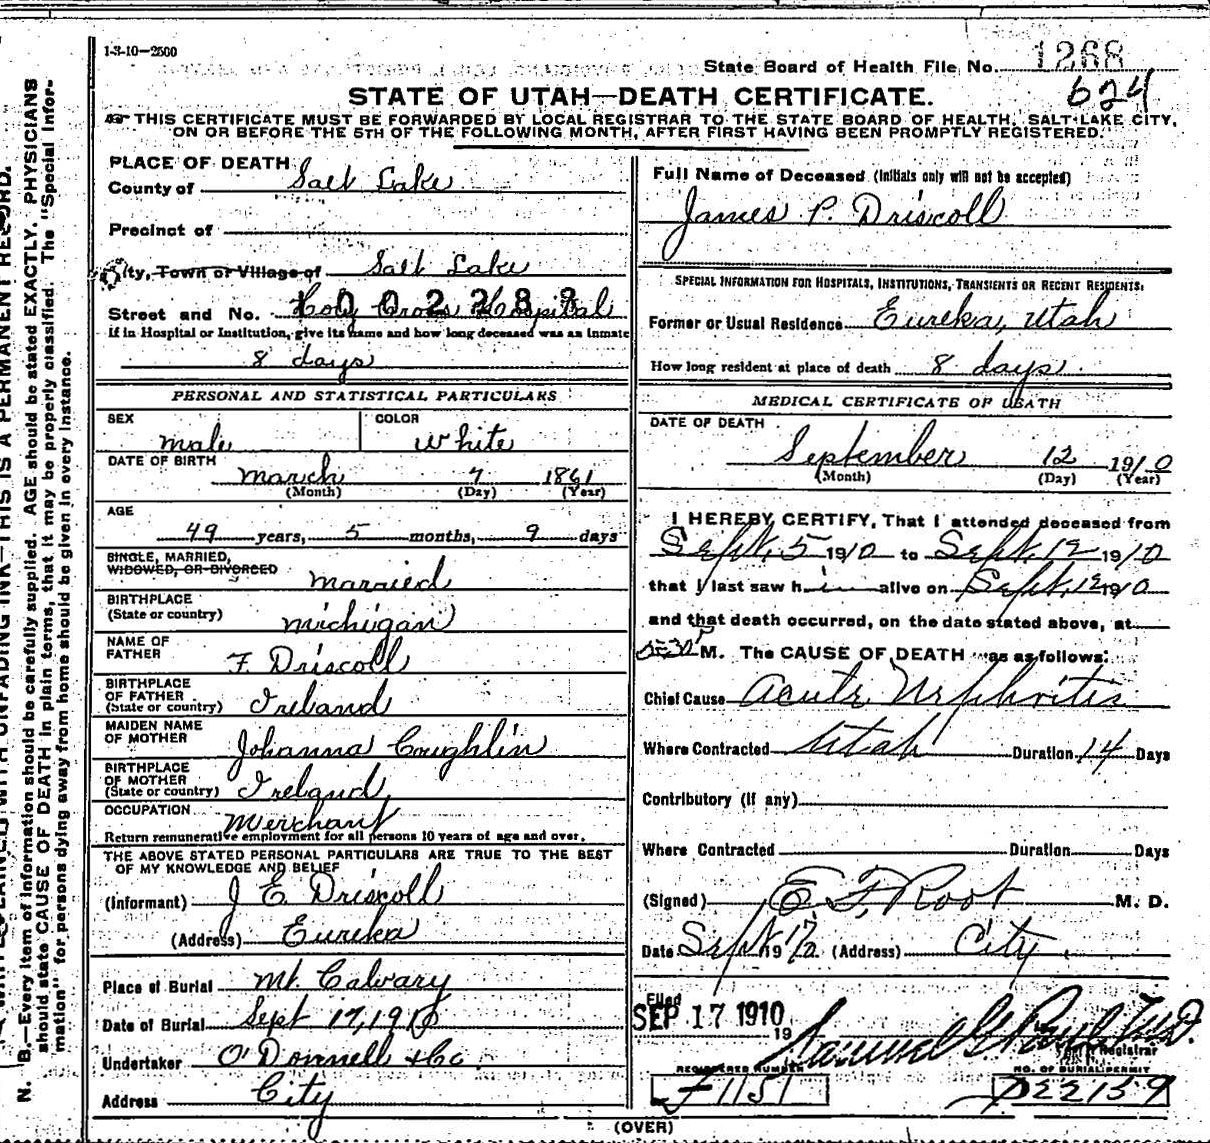 1-3-10—2500
State Board of Health File No. 1268
624
STATE OF UTAH—DEATH CERTIFICATE.
THIS CERTIFICATE MUST BE FORWARDED BY LOCAL REGISTRAR TO THE STATE BOARD OF HEALTH, SALT LAKE CITY,
ON OR BEFORE THE 5TH OF THE FOLLOWING MONTH, AFTER FIRST HAVING BEEN PROMPTLY REGISTERED.
N. B.—Every item of information should be carefully supplied. AGE should be stated EXACTLY. PHYSICIANS
should state CAUSE OF DEATH in plain terms, that it may be properly classified. The "Special Infor-
mation" for persons dying away from home should be given in every instance.
PLACE OF DEATH
County of Salt Lake
Precinct of
City, Town or Village of Salt Lake
Street and No. Holy Cross Hospital
If in Hospital or Institution, give its name and how long deceased was an inmate
8 days
PERSONAL AND STATISTICAL PARTICULARS
SEX male COLOR White
DATE OF BIRTH March 7 1861
(Month) (Day) (Year)
AGE
49 years, 5 months, 9 days
SINGLE, MARRIED,
WIDOWED, OR DIVORCED married
BIRTHPLACE
(State or country) michigan
NAME OF
FATHER F. Driscoll
BIRTHPLACE
OF FATHER
(State or country) Ireland
MAIDEN NAME
OF MOTHER Johanna Coughlin
BIRTHPLACE
OF MOTHER
(State or country) Ireland
OCCUPATION Merchant
Return remunerative employment for all persons 10 years of age and over.
THE ABOVE STATED PERSONAL PARTICULARS ARE TRUE TO THE BEST
OF MY KNOWLEDGE AND BELIEF
(Informant) J E. Driscoll
(Address) Eureka
Place of Burial Mt. Calvary
Date of Burial Sept 17, 1910
Undertaker O'Donnell & Co.
Address City
Full Name of Deceased (Initials only will not be accepted)
James P. Driscoll
SPECIAL INFORMATION FOR HOSPITALS, INSTITUTIONS, TRANSIENTS OR RECENT RESIDENTS:
Former or Usual Residence Eureka, Utah
How long resident at place of death 8 days.
MEDICAL CERTIFICATE OF DEATH
DATE OF DEATH
September 12 1910
(Month) (Day) (Year)
I HEREBY CERTIFY, That I attended deceased from
Sept. 5 1910 to Sept. 12 1910
that I last saw him alive on Sept. 12 1910
and that death occurred, on the date stated above, at
5-30 P M. The CAUSE OF DEATH was as follows:
Chief Cause Acute Nephritis
Where Contracted Utah Duration 14 Days
Contributory (if any)
Where Contracted Duration Days
(Signed) E. F. Root M. D.
Date Sept 17 1910 (Address) City.
Filed
SEP 17 1910 19 Samuel G. Paul M.D.
Registrar
REGISTERED NUMBER NO. OF BURIAL PERMIT
F 1151 D22159
(OVER)